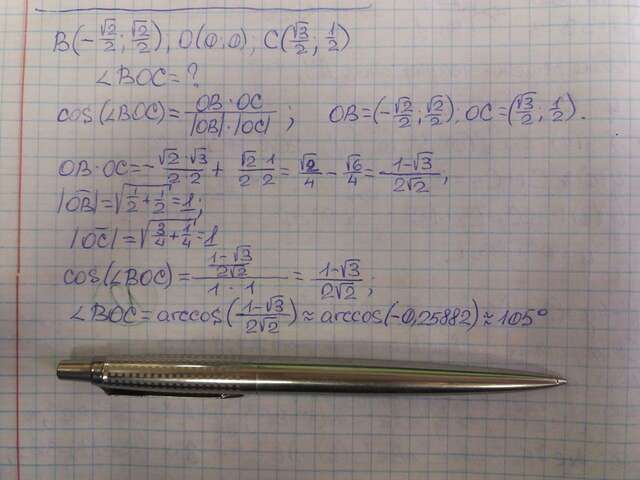 B(-√2/2; √2/2), O(0;0); C(√3/2; 1/2)
∠BOC=?
cos(∠BOC)= OB·OC/|OB|·|OC|; OB=(-√2/2; √2/2); OC=(√3/2; 1/2).
OB·OC=-√2·√3/2·2 + √2·1/2·2 = √2/4 - √6/4 = 1-√3/2√2;
|OB|=√(1/2+1/2)=1;
|OC|=√(3/4+1/4)=1
cos(∠BOC)= (1-√3/2√2)/1·1 = 1-√3/2√2;
∠BOC=arccos(1-√3/2√2)≈arccos(-0,25882)≈105°